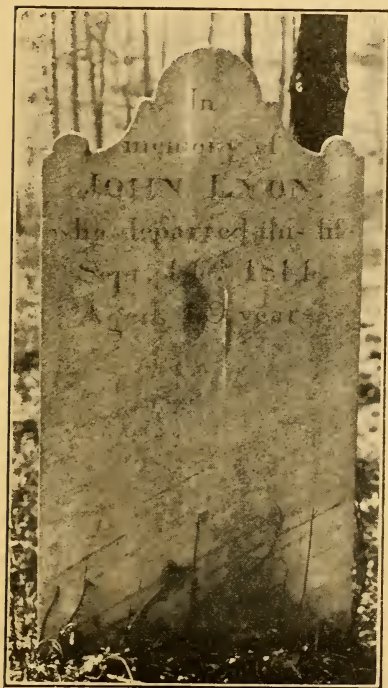 In
memory of
JOHN LYON
who departed this life
Sept. 1814
Aged years